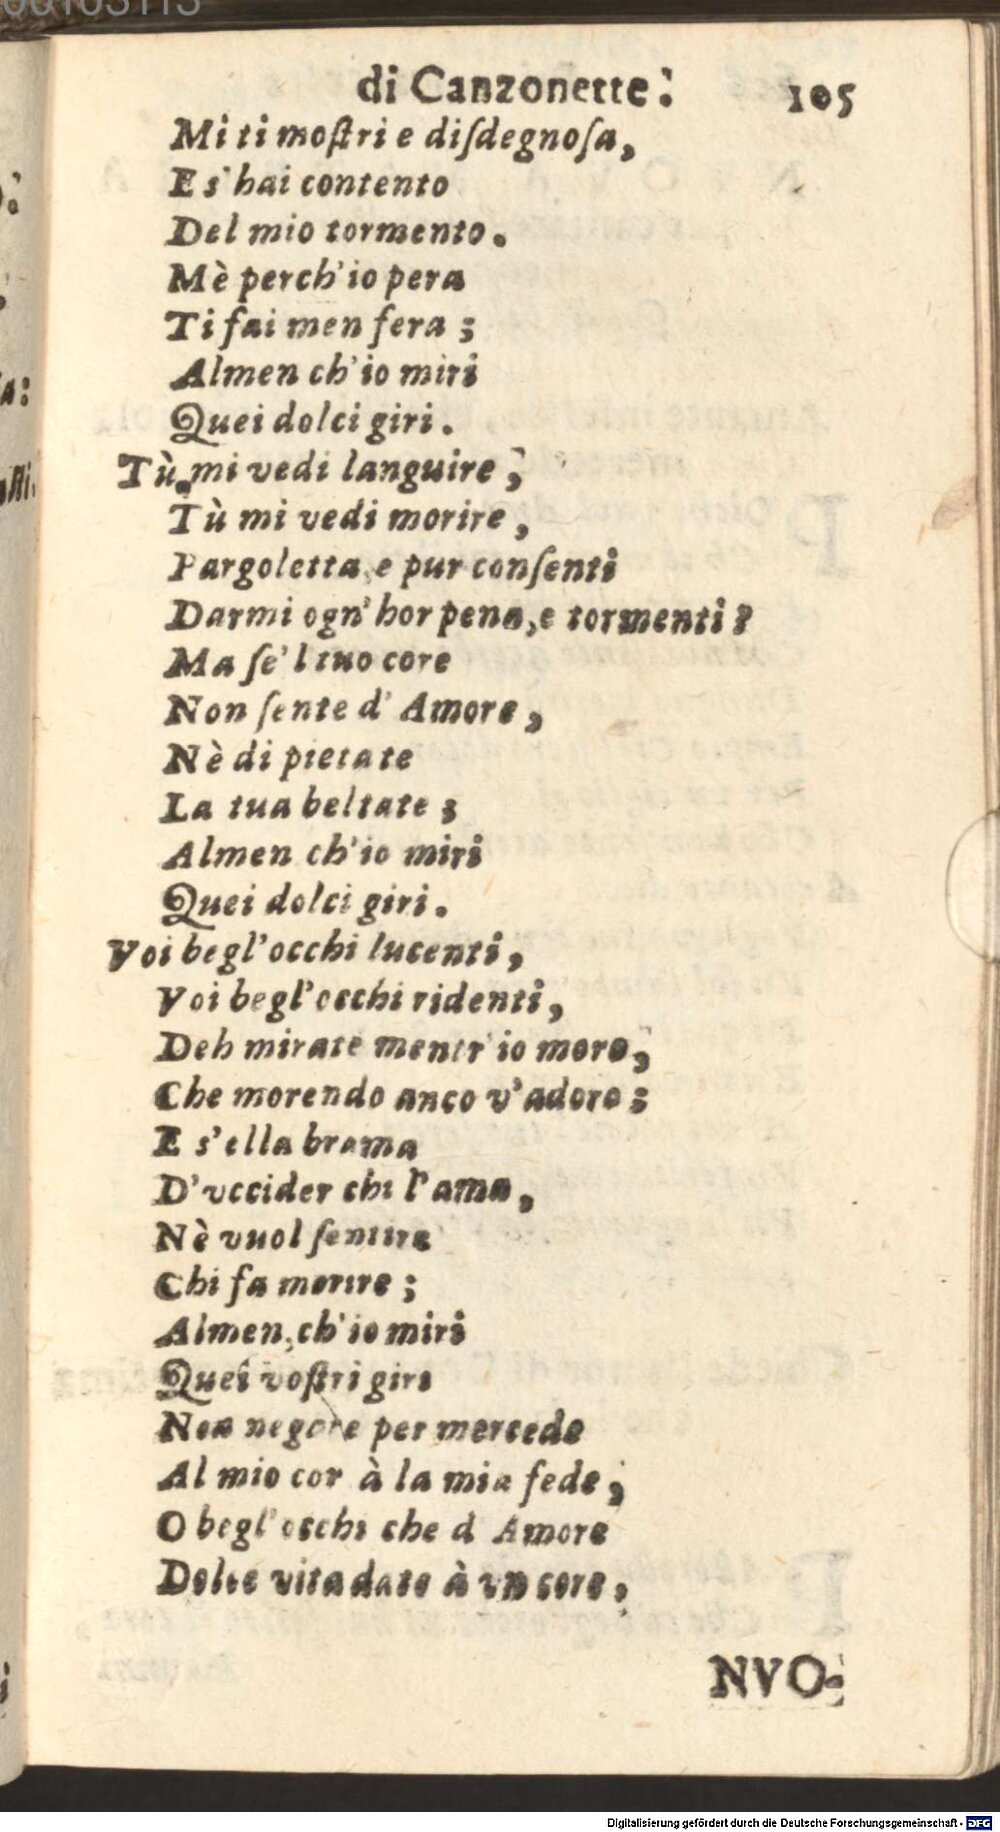 00103113
di Canzonette. 105
Mi ti moſtri e diſdegnoſa,
E s'hai contento
Del mio tormento.
Mè perch'io pera
Ti fai men fera;
Almen ch'io miri
Quei dolci giri.
Tù mi vedi languire;
Tù mi vedi morire,
Pargoletta, e pur conſenti
Darmi ogn'hor pena, e tormenti?
Ma ſe'l tuo core
Non ſente d'Amore,
Nè di pietate
La tua beltate;
Almen ch'io miri
Quei dolci giri.
Voi begl'occhi lucenti,
Voi begl'occhi ridenti,
Deh mirate mentr'io moro,
Che morendo anco v'adoro;
E s'ella brama
D'vccider chi l'ama,
Nè vuol ſentire
Chi fa morire;
Almen, ch'io miri
Quei voſtri giri
Non negate per mercede
Al mio cor à la mia fede;
O begl'occhi che d Amore
Dolce vita dato à vn core,
NVO-
Digitalisierung gefördert durch die Deutsche Forschungsgemeinschaft - DFG